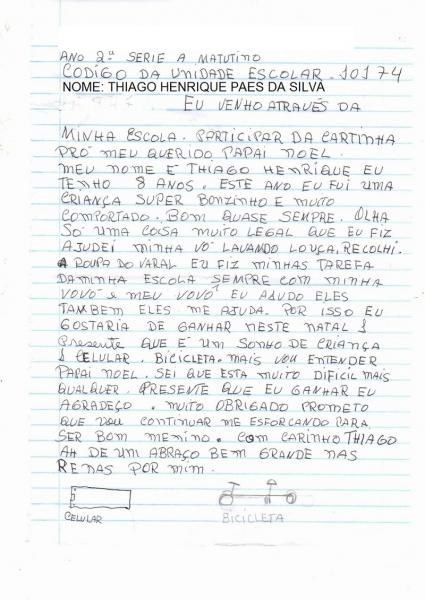 ANO 2ª SERIE A MATUTINO
CODIGO DA UNIDADE ESCOLAR. 10174
NOME: THIAGO HENRIQUE PAES DA SILVA
EU VENHO ATRAVÉS DA
MINHA ESCOLA. PARTICIPAR DA CARTINHA
PRÓ MEU QUERIDO PAPAI NOEL.
MEU NOME É THIAGO HENRIQUE EU
TENHO 8 ANOS. ESTE ANO EU FUI UMA
CRIANÇA SUPER BONZINHO E MUITO
COMPORTADO. BOM QUASE SEMPRE. OLHA
SÓ UMA COISA MUITO LEGAL QUE EU FIZ
AJUDEI MINHA VÓ LAVANDO LOUÇA, RECOLHI.
A ROUPA DO VARAL EU FIZ MINHAS TAREFA
DA MINHA ESCOLA SEMPRE COM MINHA
VOVÓ e MEU VOVÔ EU AJUDO ELES
TAMBEM ELES ME AJUDA. POR ISSO EU
GOSTARIA DE GANHAR NESTE NATAL 1
Presente QUE É UM SONHO DE CRIANÇA
1 CELULAR. BICICLETA. MAIS VOU ENTENDER
PAPAI NOEL. SEI QUE ESTA MUITO DIFICIL MAIS
QUALQUER. PRESENTE QUE EU GANHAR EU
AGRADEÇO. MUITO OBRIGADO PROMETO
QUE VOU CONTINUAR ME ESFORÇANDO PARA.
SER BOM MENINO. COM CARINHO THIAGO
AH DE UM ABRAÇO BEM GRANDE NAS
RENAS POR MIM.
CELULAR
BICICLETA